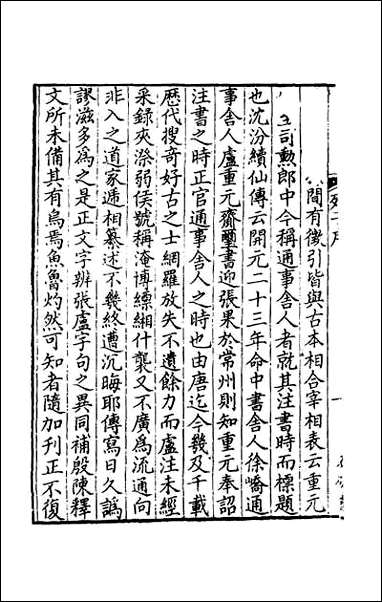 間有徵引皆與古本相合宰相表云重元
司勲郎中今稱通事舎人者就其注書時而標題
也沈汾續仙傳云開元二十三年命中書舍人徐嶠通
事舍人盧重元齎璽書迎張果於常州則知重元奉詔
注書之時正官通事舍人之時也由唐迄今幾及千載
歴代搜奇好古之士網羅放失不遺餘力而盧注未經
采錄夾漈弱侯號稱淹博縹緗什襲又不廣爲流通向
非入之道家遞相纂述不幾終遭沉晦耶傳寫日久譌
謬滋多爲之是正文字辨張盧字句之異同補殷陳釋
文所未備其有烏焉魚魯灼然可知者隨加刊正不復